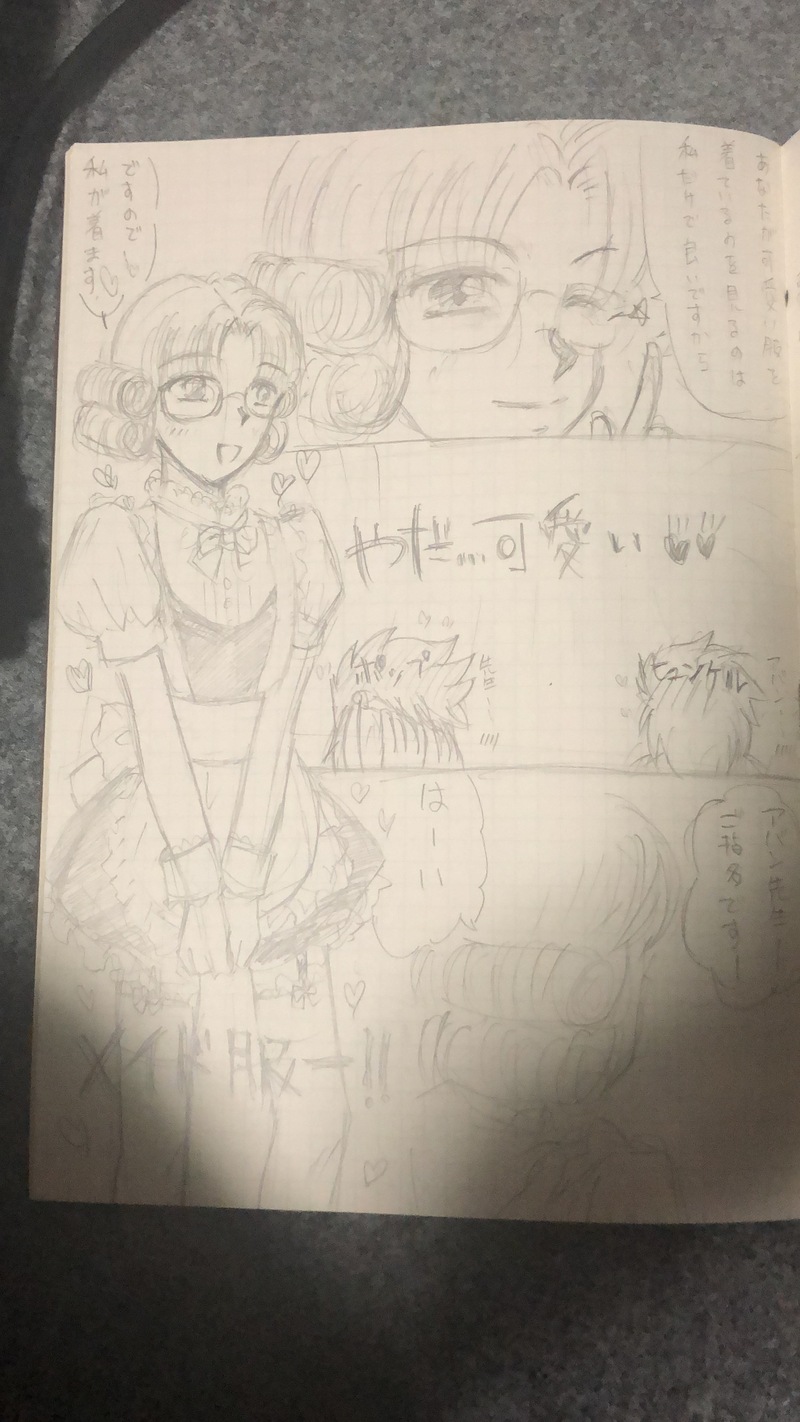 あなたが可愛い服を
着ているのを見るのは
私だけで良いですから
ですので
私が着ます
やだ…可愛い
ポップ
先生〜
ヒュンケル
アバン…
アバン先生ー
ご指名ですー
はーい
メイド服ー!!